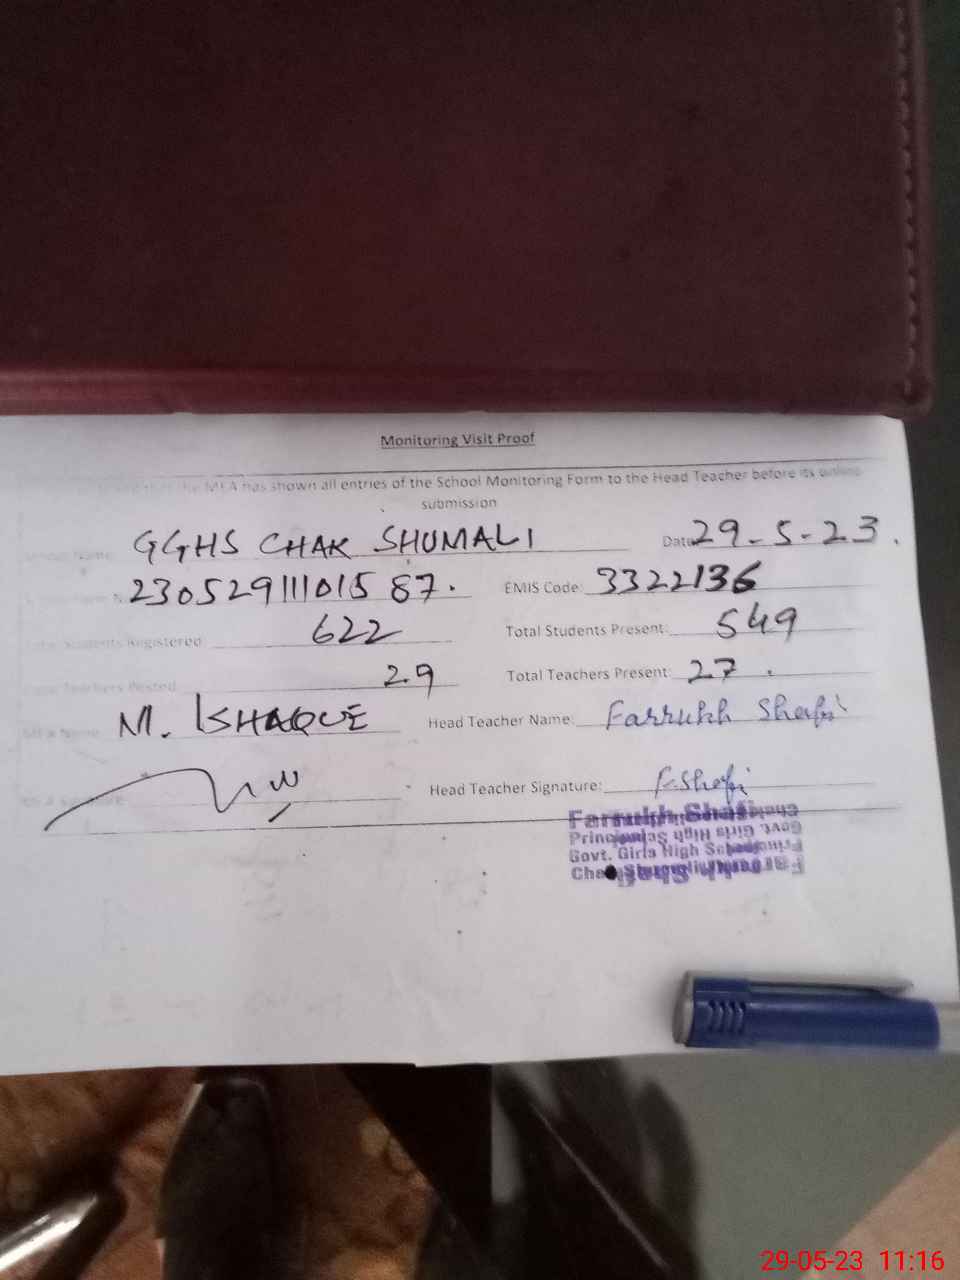 Monitoring Visit Proof
the MEA has shown all entries of the School Monitoring Form to the Head Teacher before its online
submission
Name: GGHS CHAK SHUMALI Date 29-5-23.
23052911101587. EMIS Code: 3322136
Students Registered 622 Total Students Present: 549
Teachers Posted 29 Total Teachers Present: 27.
MEA Name M. ISHAQUE Head Teacher Name: Farrukh Shafi
signature Head Teacher Signature: F.Shafi
Farrukh Shafi
Principal
Govt. Girls High School
29-05-23 11:16